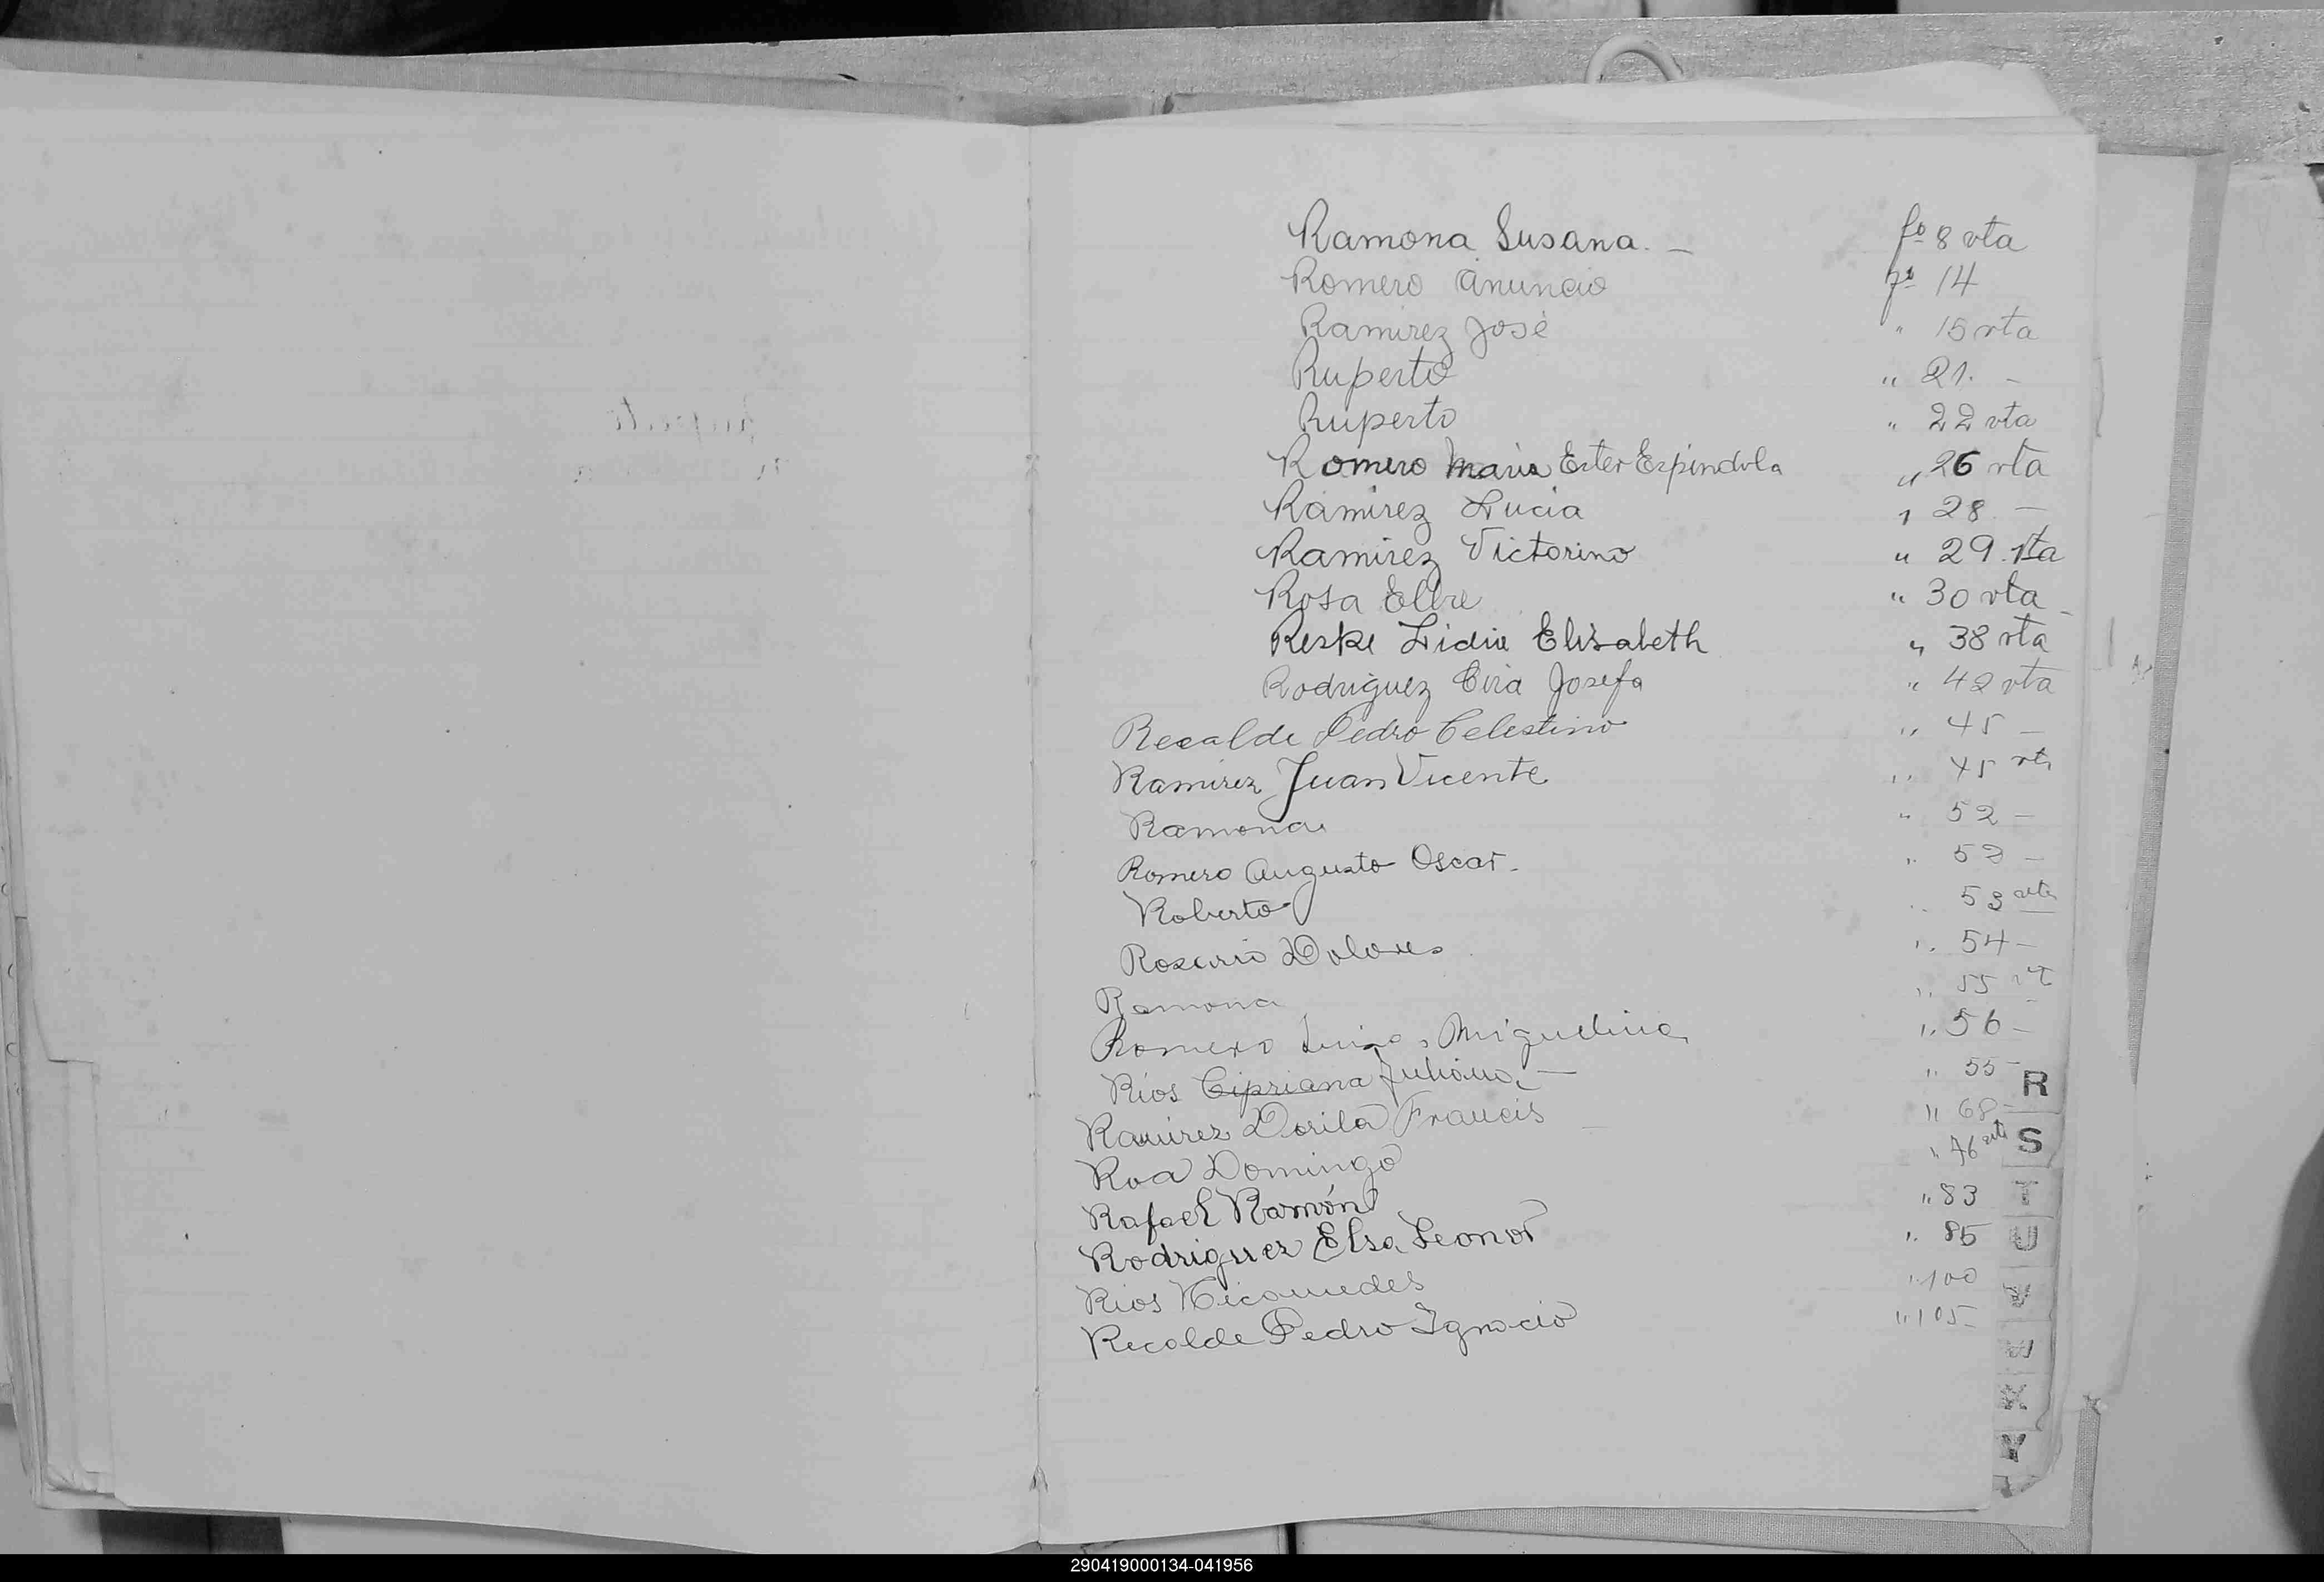 Ramona Susana. — fº 8 vta
Romero Anuncio fº 14
Ramirez José " 15 vta
Ruperto " 21. -
Ruperto " 22 vta
Romero Maria Ester Espindola " 26 vta
Ramirez Lucia " 28 -
Ramirez Victorino " 29 vta
Rosa " 30 vta -
Reske Lidia Elisabeth " 38 vta
Rodriguez Josefa " 42 vta
Recalde Pedro Celestino " 45 -
Ramirez Juan Vicente " 45 vta
Ramona " 52 -
Romero Augusto Oscar. " 53 -
Roberto " 53 vta
Rosario Dolores " 54 -
Ramona " 55 vt
Romero Luisa Miguelina " 56 -
Rios Cipriana Juliana — " 55 -
Ramirez Dorila Francis " 68 -
Roa Domingo " 76 vta
Rafael Ramón " 83
Rodriguez Elsa Leonor " 85
Rios Nicomedes " 100
Recalde Pedro Ignacio " 105 -
R
S
T
U
V
W
X
Y
290419000134-041956